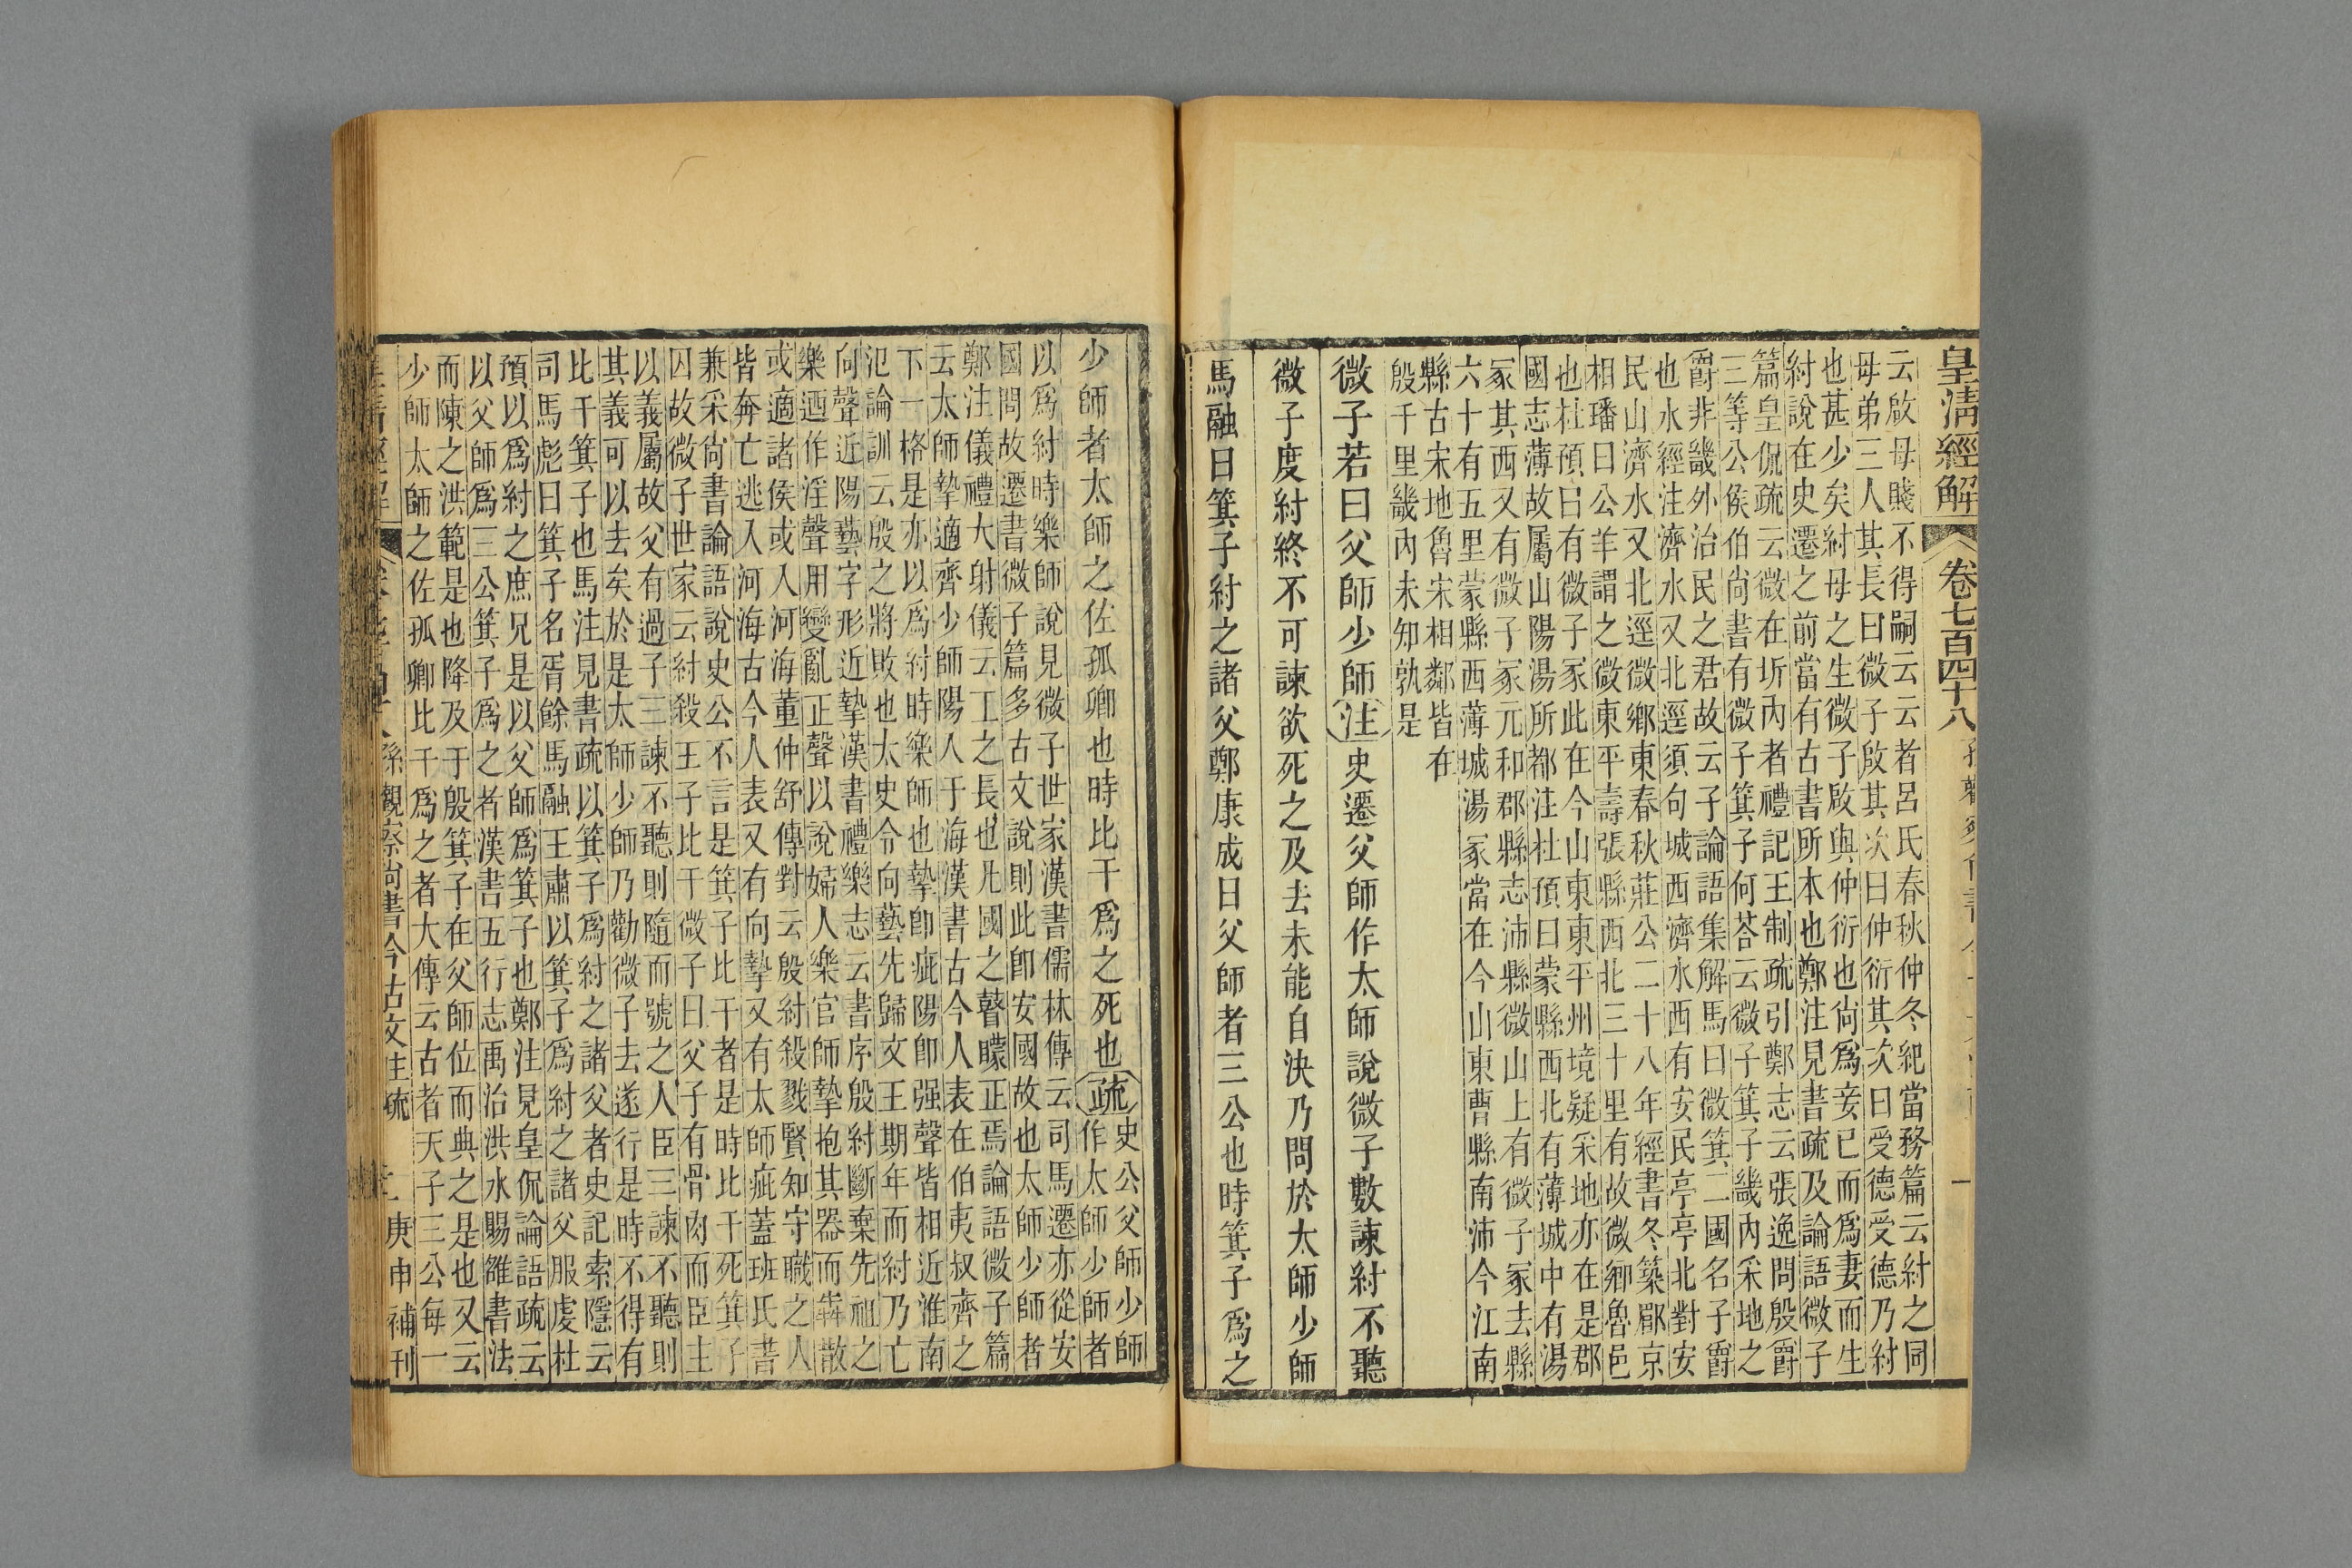 皇清經解 卷七百四十八
云啟母賤不得嗣云云者呂氏春秋仲冬紀當務篇云紂之同
母弟三人其長曰微子啟其次曰仲衍其次曰受德受德乃紂
也甚少矣紂母之生微子啟與仲衍也尙爲妾已而爲妻而生
紂說在史遷之前當有古書所本也鄭注見書疏及論語微子
篇皇侃疏云微在圻內者禮記王制疏引鄭志云張逸問殷爵
三等公侯伯尙書有微子箕子何荅云微子箕子畿內采地之
爵非畿外治民之君故云子論語集解馬曰微箕二國名子爵
也水經注濟水又北逕須句城西濟水西有安民亭亭北對安
民山濟水又北逕微鄉東春秋莊公二十八年經書冬築郿京
相璠曰公羊謂之微東平壽張縣西北三十里有故微鄉魯邑
也杜預曰有微子冢此在今山東東平州境疑采地亦在是郡
國志薄故屬山陽湯所都注杜預曰蒙縣西北有薄城中有湯
冢其西又有微子冢元和郡縣志沛縣微山上有微子冢去縣
六十有五里蒙縣西薄城湯冢當在今山東曹縣南沛今江南
縣古宋地魯宋相鄰皆在
殷千里畿內未知孰是
微子若曰父師少師注史遷父師作太師說微子數諫紂不聽
微子度紂終不可諫欲死之及去未能自決乃問於太師少師
馬融曰箕子紂之諸父鄭康成曰父師者三公也時箕子爲之
少師者太師之佐孤卿也時比干爲之死也疏史公父師少師
作太師少師者
以爲紂時樂師說見微子世家漢書儒林傳云司馬遷亦從安
國問故遷書微子篇多古文說則此卽安國故也太師少師者
鄭注儀禮大射儀云工之長也凡國之瞽矇正焉論語微子篇
云太師摯適齊少師陽人于海漢書古今人表在伯夷叔齊之
下一格是亦以爲紂時樂師也摯卽疵陽卽强聲皆相近淮南
氾論訓云殷之將敗也太史令向藝先歸文王期年而紂乃亡
向聲近陽藝字形近摯漢書禮樂志云書序殷紂斷棄先祖之
樂迺作淫聲用變亂正聲以說婦人樂官師摯抱其器而犇散
或適諸侯或入河海董仲舒傳對云殷紂殺戮賢知守職之人
皆奔亡逃入河海古今人表又有向摯又有太師疵蓋班氏書
兼采尙書論語說史公不言是箕子比干者是時比干死箕子
囚故微子世家云紂殺王子比干微子曰父子有骨肉而臣主
以義屬故父有過子三諫不聽則隨而號之人臣三諫不聽則
其義可以去矣於是太師少師乃勸微子去遂行是時不得有
比干箕子也馬注見書疏以箕子爲紂之諸父者史記索隱云
司馬彪曰箕子名胥餘馬融王肅以箕子爲紂之諸父服虔杜
預以爲紂之庶兄是以父師爲箕子也鄭注見皇侃論語疏云
以父師爲三公箕子爲之者漢書五行志禹治洪水賜雒書法
而陳之洪範是也降及于殷箕子在父師位而典之是也又云
少師太師之佐孤卿比干爲之者大傳云古者天子三公每一
孫觀察尙書今古文注疏 庚申補刊